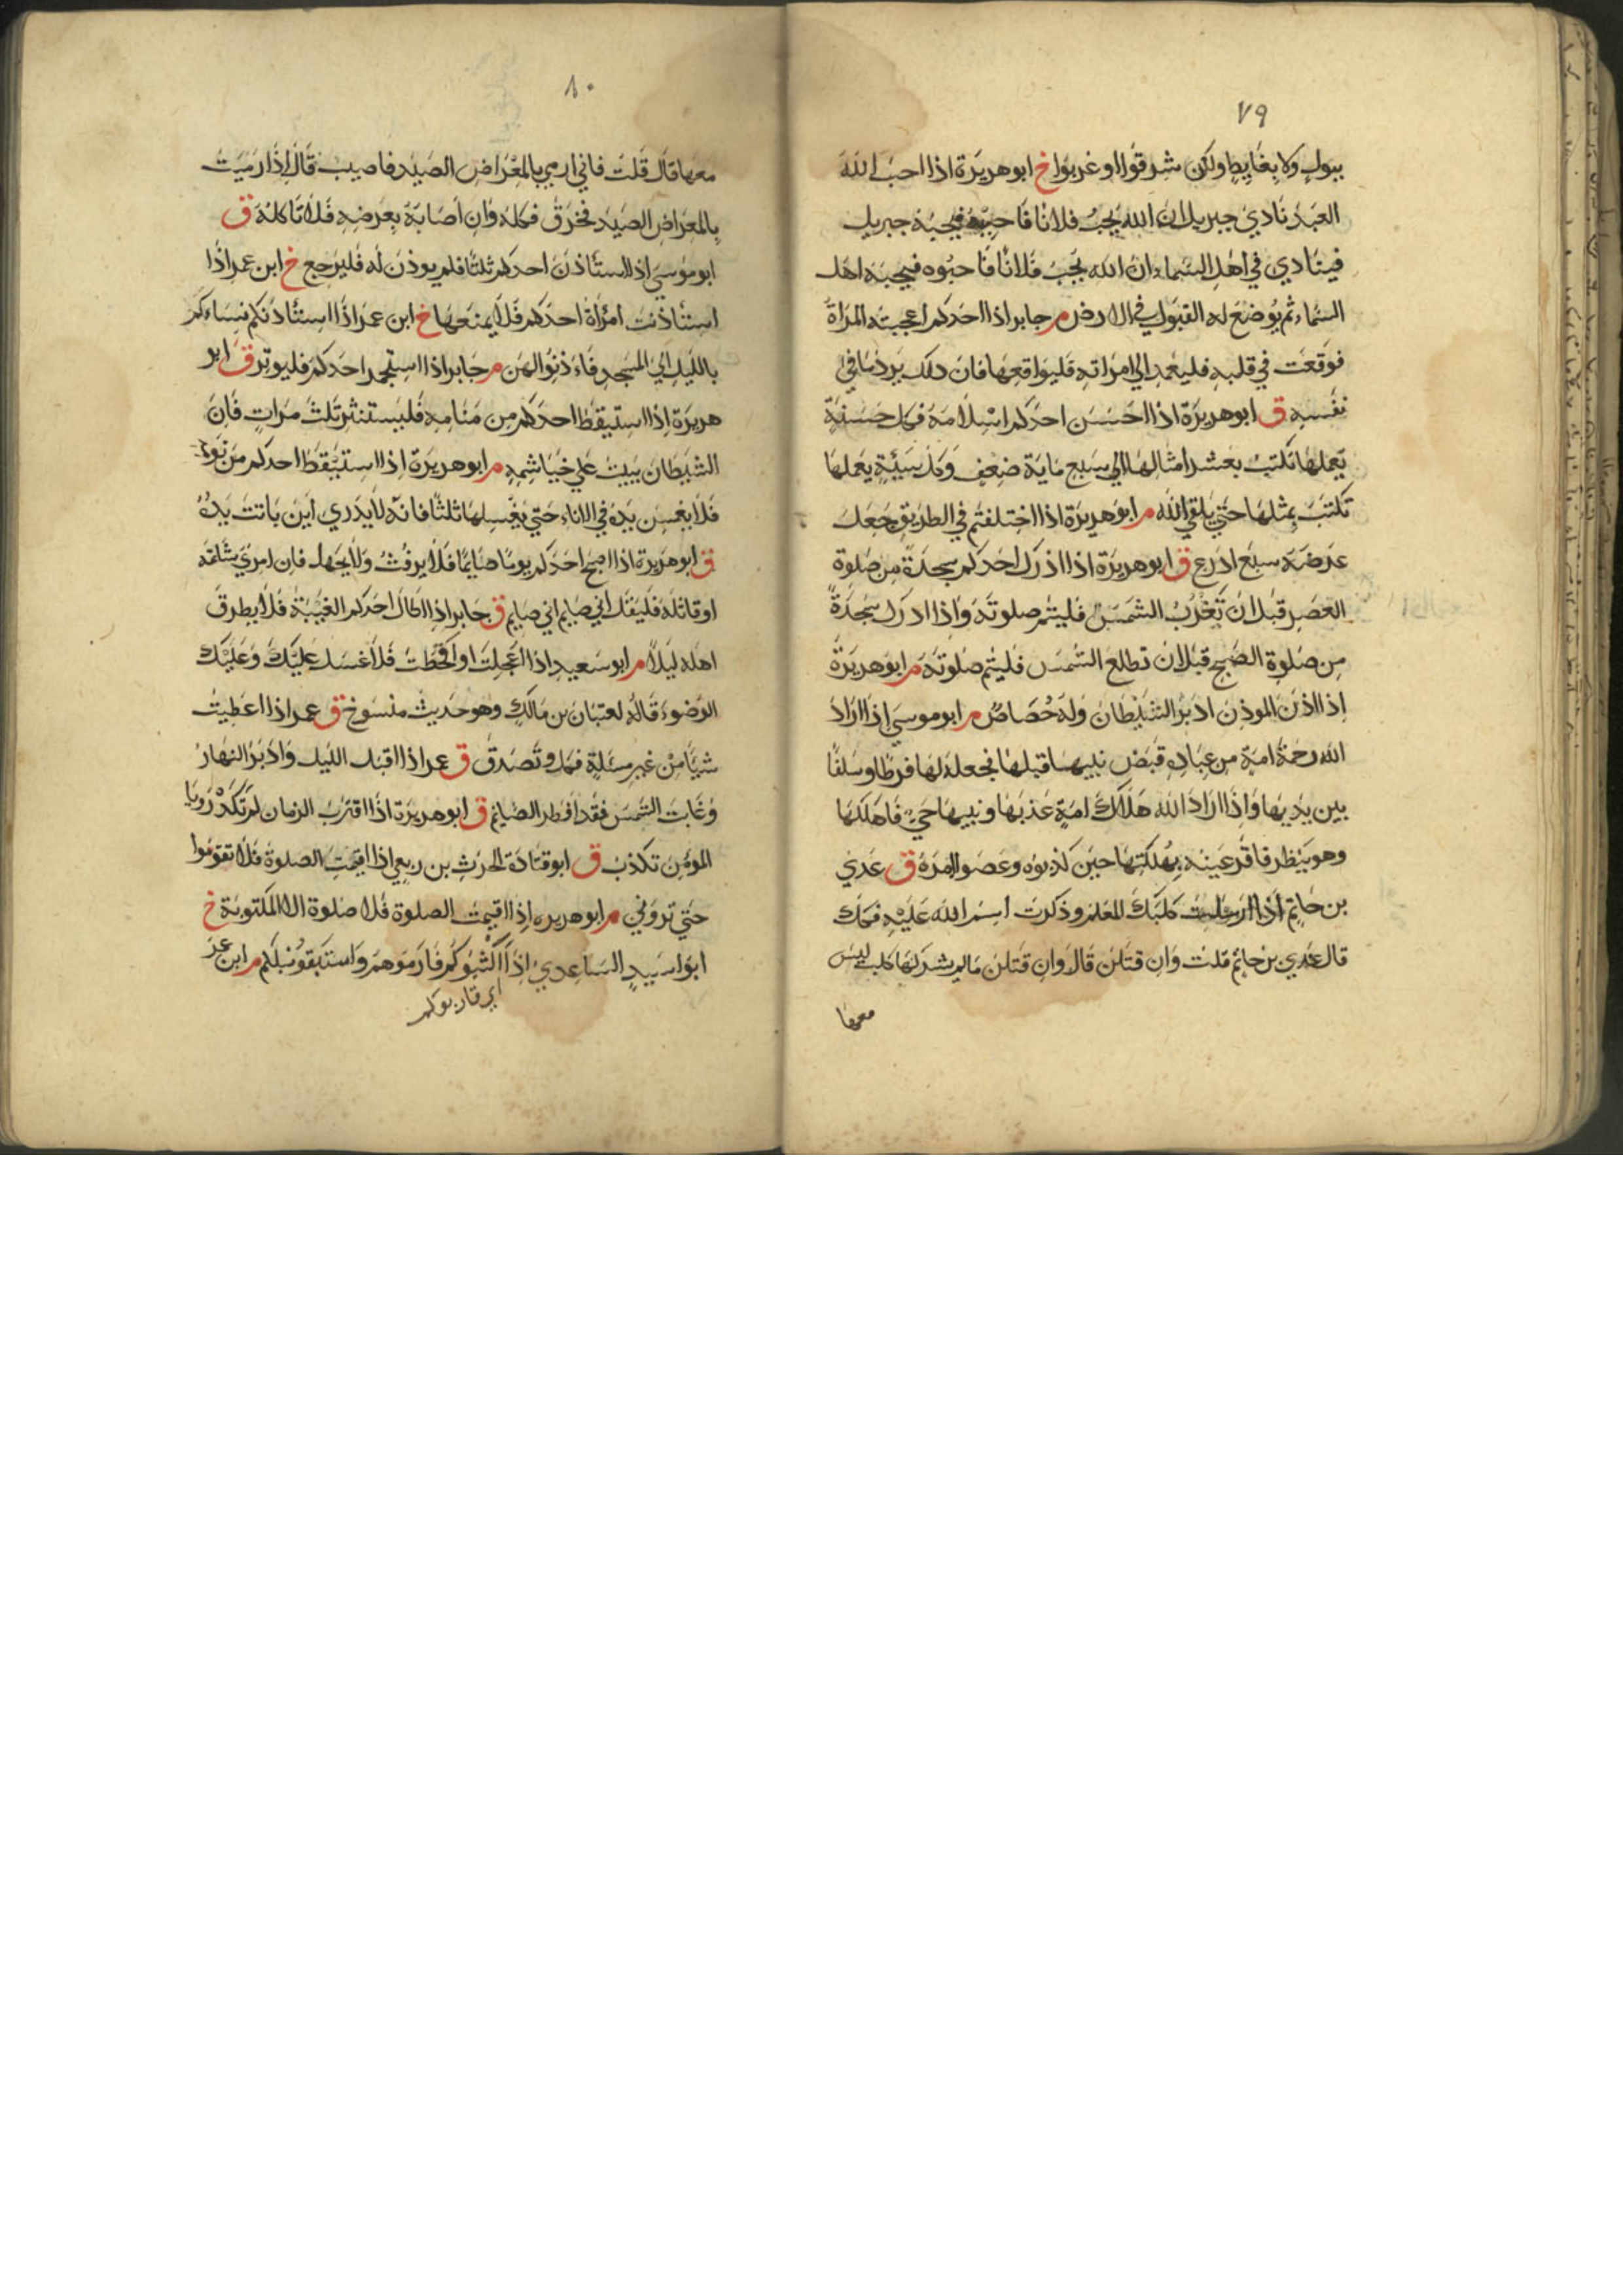 ٧٩
ببول ولا بغايط ولكن شرقوا او غربوا خ ابو هريرة اذا احب الله
العبد نادي جبريل ان الله يحب فلانا فاحبه فيحبه جبريل
فينادي في اهل السماء ان الله يحب فلانا فاحبوه فيحبه اهل
السماء ثم يوضع له القبول في الارض م جابر اذا احدكم اعجبته المراة
فوقعت في قلبه فليعمد الي امراته فليواقعها فان ذلك يرد ما في
نفسه ق ابو هريرة اذا احسن احدكم اسلامه فكل حسنة
يعملها تكتب بعشر امثالها الي سبع ماية ضعف وكل سيئة يعملها
تكتب بمثلها حتي يلقي الله م ابو هريرة اذا اختلفتم في الطريق جعل
عرضه سبع اذرع ق ابو هريرة اذا ادرك احدكم سجدة من صلوة
العصر قبل ان تغرب الشمس فليتم صلوته واذا ادرك سجدة
من صلوة الصبح قبل ان تطلع الشمس فليتم صلوته م ابو هريرة
اذا اذن الموذن ادبر الشيطان وله حصاص م ابو موسي اذا اراد
الله رحمة امة من عباده قبض نبيها قبلها فجعله لها فرطا وسلفا
بين يديها واذا اراد الله هلاك امة عذبها ونبيها حي فاهلكها
وهو ينظر فاقر عينه بهلكتها حين كذبوه وعصوا امره ق عدي
بن حاتم اذا ارسلت كلبك المعلم وذكرت اسم الله عليه فكل
قال عدي بن حاتم قلت وان قتلن قال وان قتلن مالم يشركها كلب ليس
معها
٨٠
معها قال قلت فاني ارمي بالمعراض الصيد فاصيب قال اذا رميت
بالمعراض الصيد فخزق فكله وان اصابه بعرضه فلا تاكله ق
ابو موسي اذا استأذن احدكم ثلثا فلم يوذن له فليرجع خ ابن عمر اذا
استأذنت امرأة احدكم فلا يمنعها خ ابن عمر اذا استأذنكم نساءكم
بالليل الي المسجد فاءذنوا لهن م جابر اذا استجمر احدكم فليوتر ق ابو
هريرة اذا استيقظ احدكم من منامه فليستنثر ثلث مرات فان
الشيطان يبيت علي خياشمه م ابو هريرة اذا استيقظ احدكم من نومه
فلا يغمس يده في الاناء حتي يغسلها ثلثا فانه لا يدري اين باتت يده
ق ابو هريرة اذا اصبح احدكم يوما صايما فلا يرفث ولا يجهل فان امرئ شاتمه
او قاتله فليقل اني صايم اني صايم ق جابر اذا اطال احدكم الغيبة فلا يطرق
اهله ليلا م ابو سعيد اذا اعجلت او اقحطت فلا غسل عليك وعليك
الوضوء قاله لعتبان بن مالك وهو حديث منسوخ ق عمر اذا اعطيت
شيأ من غير مسئلة فكل وتصدق ق عمر اذا اقبل الليل وادبر النهار
وغابت الشمس فقد افطر الصايم ق ابو هريرة اذا اقترب الزمان لم تكد رويا
المومن تكذب ق ابو قتادة الحرث بن ربعي اذا اقيمت الصلوة فلا تقوموا
حتي تروني م ابو هريره اذا اقيمت الصلوة فلا صلوة الا المكتوبة خ
ابو اسيد الساعدي اذا اكثبوكم فارموهم واستبقوا نبلكم م ابن عمر
اي قاربوكم